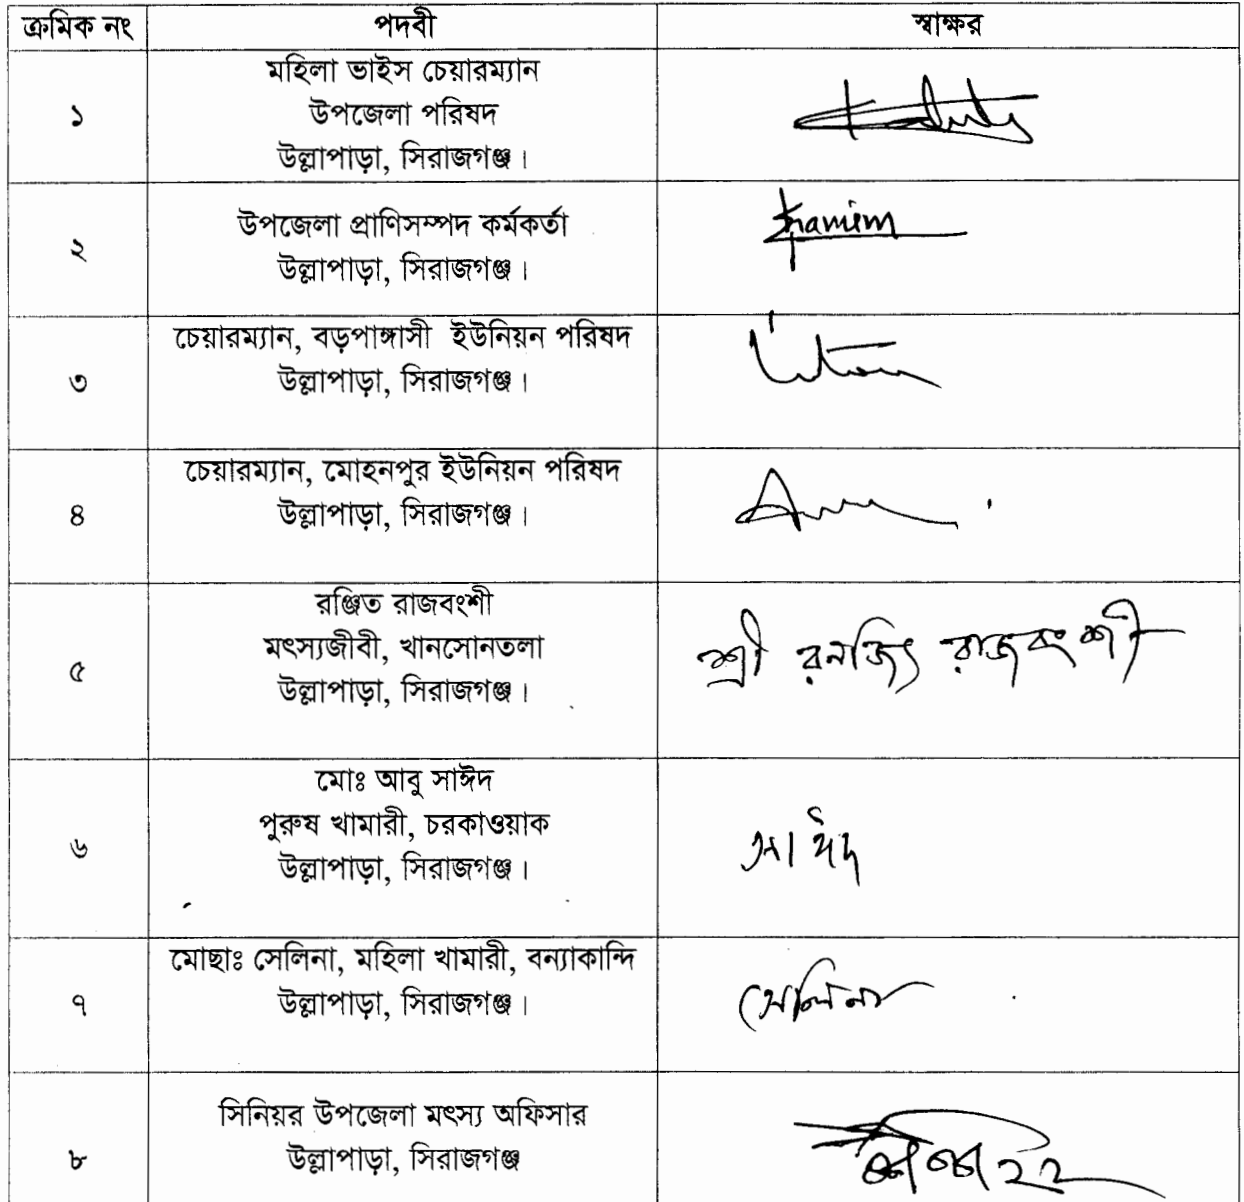 ক্রমিক নং পদবী স্বাক্ষর
মহিলা ভাইস চেয়ারম্যান
১ উপজেলা পরিষদ
উল্লাপাড়া, সিরাজগঞ্জ।
২ উপজেলা প্রাণিসম্পদ কর্মকর্তা
উল্লাপাড়া, সিরাজগঞ্জ।
চেয়ারম্যান, বড়পাঙ্গাসী ইউনিয়ন পরিষদ
৩ উল্লাপাড়া, সিরাজগঞ্জ।
চেয়ারম্যান, মোহনপুর ইউনিয়ন পরিষদ
৪ উল্লাপাড়া, সিরাজগঞ্জ।
রঞ্জিত রাজবংশী
৫ মৎস্যজীবী, খানসোনতলা শ্রী রনজিৎ রাজবংশী
উল্লাপাড়া, সিরাজগঞ্জ।
মোঃ আবু সাঈদ
৬ পুরুষ খামারী, চরকাওয়াক সাঈদ
উল্লাপাড়া, সিরাজগঞ্জ।
মোছাঃ সেলিনা, মহিলা খামারী, বন্যাকান্দি
৭ উল্লাপাড়া, সিরাজগঞ্জ। সেলিনা
সিনিয়র উপজেলা মৎস্য অফিসার
৮ উল্লাপাড়া, সিরাজগঞ্জ